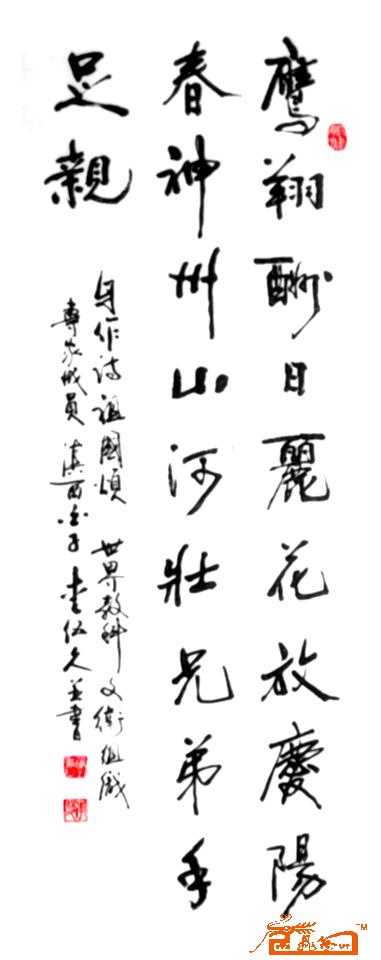 鷹翔酬日麗花放慶陽
春神州山河壯兄弟手
足親
自作詩祖國頌 世界教科文衛組織
專家成員 滇西學子 李伍久並書